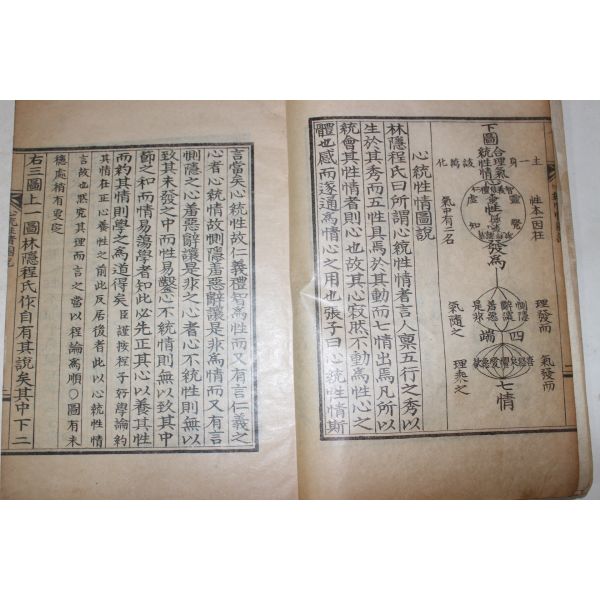 下圖
合理氣
統性情
主一身
該萬化
仁義禮智
虛靈
知覺
性
性本一因在
氣中有二名
發爲
四端
惻隱
辭讓
羞惡
是非
理發而
氣隨之
喜怒哀懼愛惡欲
七情
氣發而
理乘之
心統性情圖說
林隱程氏曰所謂心統性情者言人禀五行之秀以
生於其秀而五性具焉於其動而七情出焉凡所以
統會其性情者則心也故其心寂然不動爲性心之
體也感而遂通爲情心之用也張子曰心統性情斯
言當矣心統性故仁義禮智爲性而又有言仁義之
心者心統情故惻隱羞惡辭讓是非爲情而又有言
惻隱之心羞惡辭讓是非之心者心不統性則無以
致其未發之中而性易鑿心不統情則無以致其中
節之和而情易蕩學者知此必先正其心以養其性
而約其情則學之爲道得矣 臣謹按程子好學論約
其情在正心養性之前此反居後者此以心統性情
言故也然究其理而言之當以程論爲順○圖有未
穩處稍有更定
右三圖上一圖林隱程氏作自有其說矣其中下二